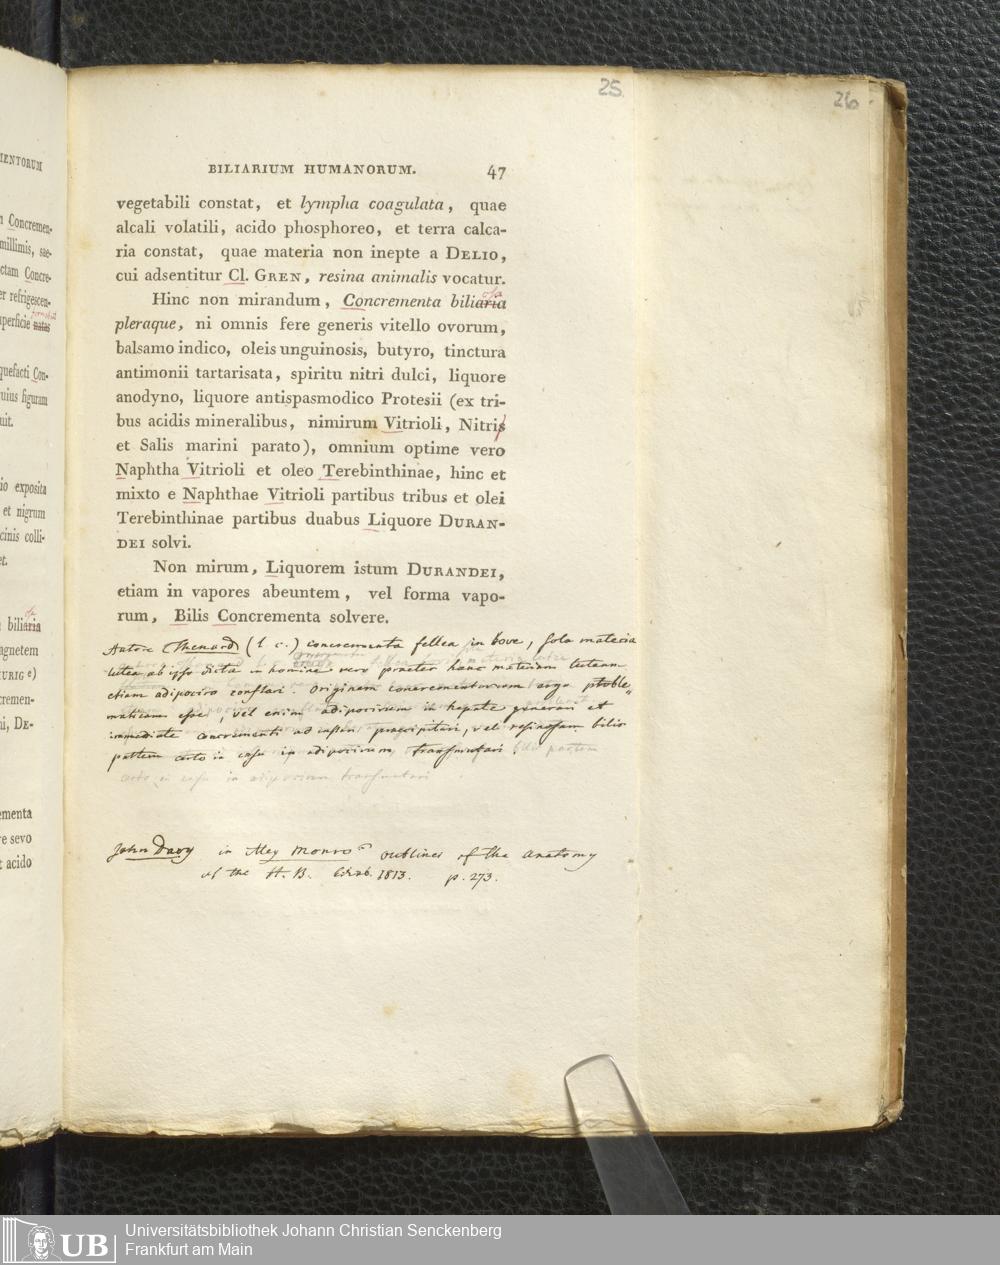 25
26
MENTORUM
BILIARIUM HUMANORUM. 47
vegetabili constat, et lympha coagulata, quae
alcali volatili, acido phosphoreo, et terra calca-
ria constat, quae materia non inepte a DELIO,
cui adsentitur Cl. GREN, resina animalis vocatur.
Hinc non mirandum, Concrementa biliaria
osa
pleraque, ni omnis fere generis vitello ovorum,
balsamo indico, oleis unguinosis, butyro, tinctura
antimonii tartarisata, spiritu nitri dulci, liquore
anodyno, liquore antispasmodico Protesii (ex tri-
bus acidis mineralibus, nimirum Vitrioli, Nitris
et Salis marini parato), omnium optime vero
Naphtha Vitrioli et oleo Terebinthinae, hinc et
mixto e Naphthae Vitrioli partibus tribus et olei
Terebinthinae partibus duabus Liquore DURAN-
DEI solvi.
Non mirum, Liquorem istum DURANDEI,
etiam in vapores abeuntem, vel forma vapo-
rum, Bilis Concrementa solvere.
Autore Thenard (l. c.) concrementa fellea in bove, sola materia
lutea ab ipso dicta in homine vero praeter hanc materiam luteam
etiam adipocira constari. Originem concrementorum ergo proble-
maticam esse, vel enim adipociram in hepate generari et
immediate concrementi ad instar praecipitari, vel resinosam bilis
partem certo in casu in adipociram transmutari.
certo in casu in adipociram transmutari
John Davy in Alex Monro outlines of the anatomy
of the H. B. Edinb. 1813. p. 273.
Concremen-
millimis, sae-
ctam Concre-
er refrigescen-
perficie natas
quefacti Con-
uius figuram
uit.
io exposita
et nigrum
cinis colli-
et.
biliaria
agnetem
URIG e)
cremen-
ni, DE-
ementa
re sevo
t acido
UB
Universitätsbibliothek Johann Christian Senckenberg
Frankfurt am Main